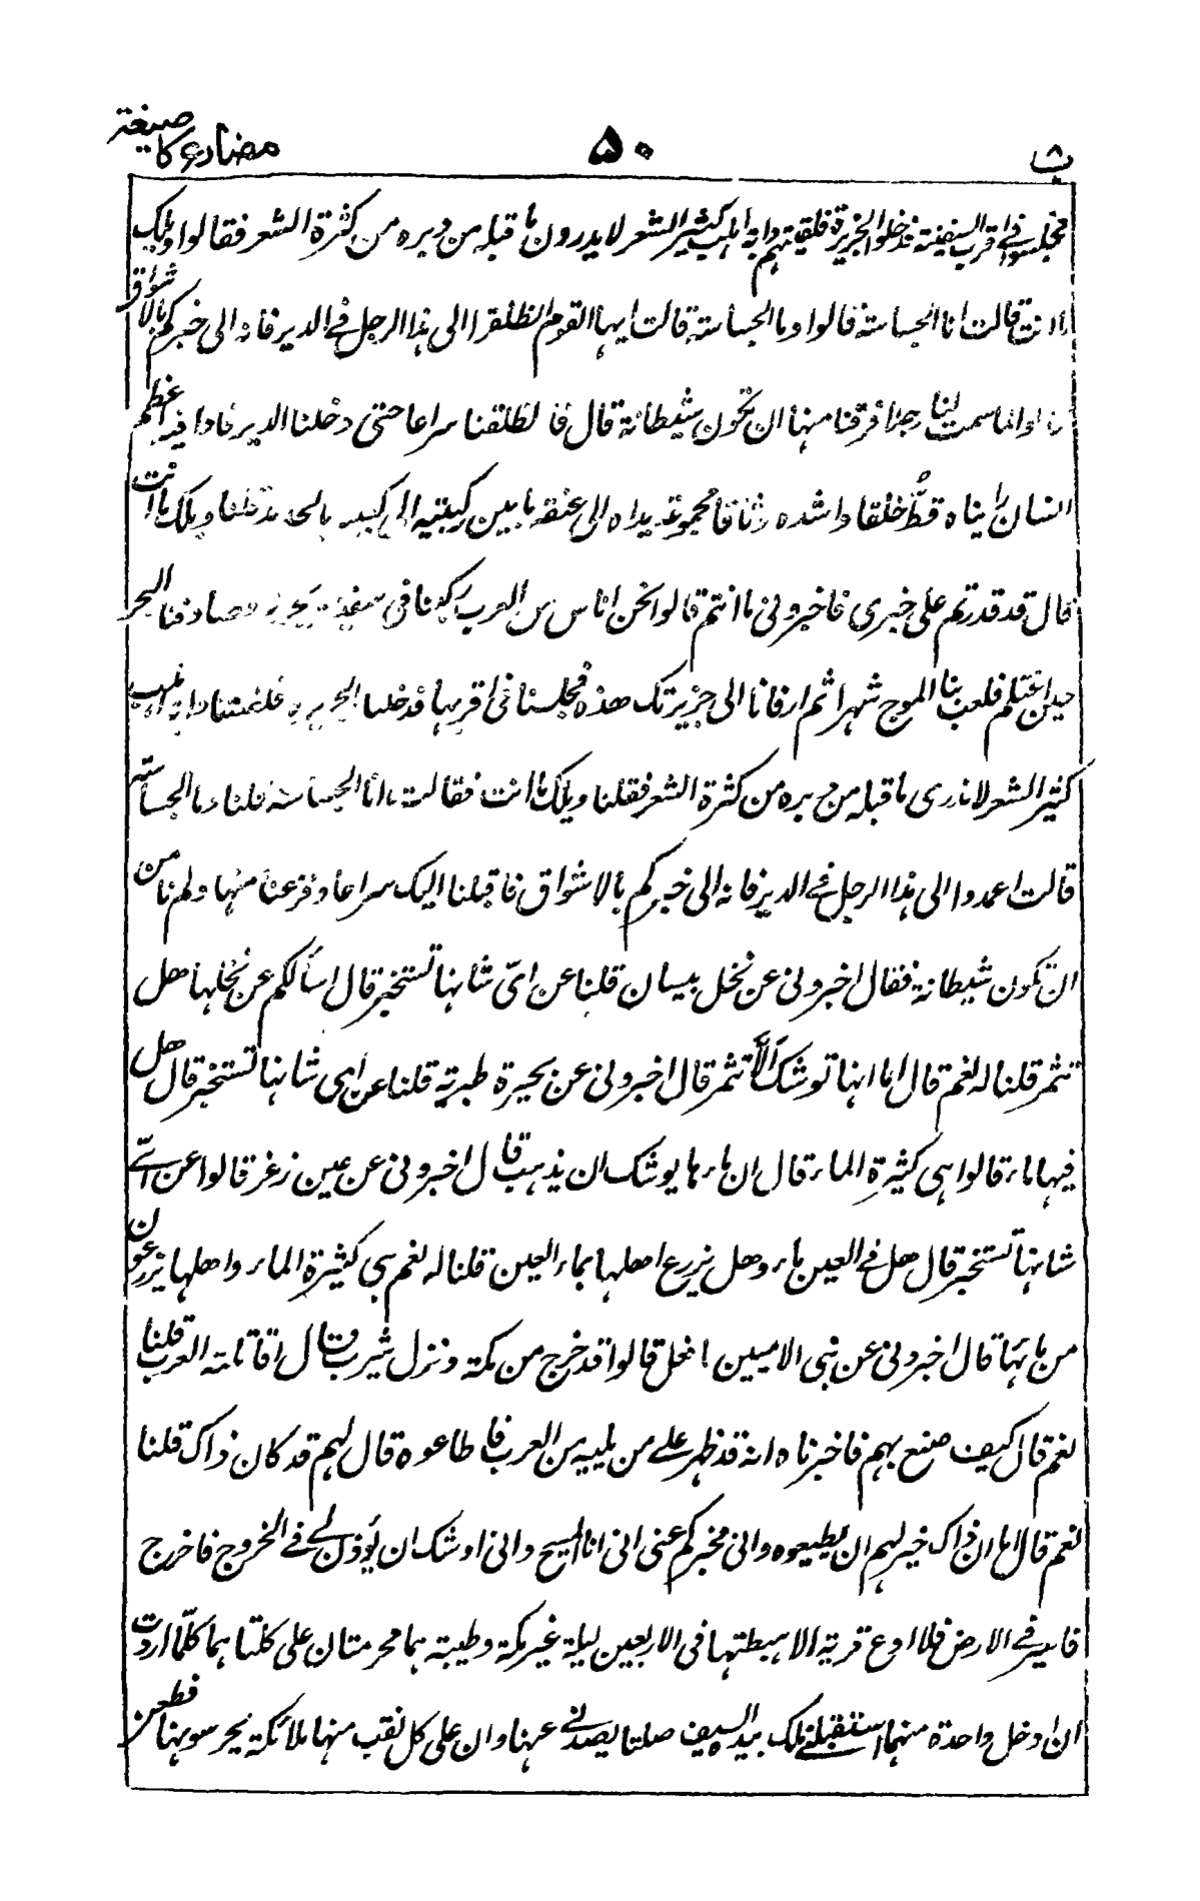 مضارع کا صیغۃ
۵۰
ب
فجلسوا فی اقرب السفینۃ فدخلوا الجزیرۃ فلقیتہم دابۃ اہلب کثیر الشعر لا یدرون ما قبلہ من دبرہ من کثرۃ الشعر فقالوا ویلک
ما انت قالت انا الجساسۃ قالوا وما الجساسۃ قالت ایہا القوم انطلقوا الی ہذا الرجل فی الدیر فانہ الی خبرکم بالاشواق
قال لما سمت لنا رجلا فرقنا منہا ان تکون شیطانۃ قال فانطلقنا سراعا حتی دخلنا الدیر فاذا فیہ اعظم
انسان رأیناہ قطّ خلقا واشدہ وثاقا مجموعۃ یداہ الی عنقہ ما بین رکبتیہ الی کعبیہ بالحدید قلنا ویلک ما انت
قال قد قدرتم علی خبری فاخبرونی ما انتم قالوا نحن اناس من العرب رکبنا فی سفینۃ بحریۃ فصادفنا البحر
حین اغتلم فلعب بنا الموج شہرا ثم ارفانا الی جزیرتک ھذہ فجلسنا فی اقربہا فدخلنا الجزیرۃ فلقیتنا دابۃ اہلب
کثیر الشعر لا ندری ما قبلہ من دبرہ من کثرۃ الشعر فقلنا ویلک ما انت فقالت انا الجساسۃ قلنا وما الجساسۃ
قالت اعمدوا الی ہذا الرجل فے الدیر فانہ الی خبرکم بالاشواق فاقبلنا الیک سراعا وفزعنا منہا ولم نامن
ان تکون شیطانۃ فقال اخبرونی عن نخل بیسان قلنا عن ایّ شانہا تستخبر قال اسألکم عن نخلہا ھل
تثمر قلنا لہ نعم قال اما انہا توشک الّا تثمر قال اخبرونی عن بحیرۃ طبریۃ قلنا عن ای شانہا تستخبر قال ھل
فیہا ماء قالوا ہی کثیرۃ الماء قال ان ماءہا یوشک ان یذہب قال اخبرونی عن عین زغر قالوا عن ایّ
شانہا تستخبر قال ھل فے العین ماء وھل یزرع اھلہا بماء العین قلنا لہ نعم ہی کثیرۃ الماء واھلہا یزرعون
من مائہا قال اخبرونی عن نبی الامیین ما فعل قالوا قد خرج من مکۃ ونزل یثرب قال اقاتلہ العرب قلنا
نعم قال کیف صنع بہم فاخبرناہ انہ قد ظہر علے من یلیہ من العرب فاطاعوہ قال لہم قد کان ذاک قلنا
نعم قال اما ان ذاک خیر لہم ان یطیعوہ وانی مخبرکم عنی انی انا المسیح وانی اوشک ان یؤذن لے فے الخروج فاخرج
فاسیر فے الارض فلا ادع قریۃ الا ھبطتہا فی الاربعین لیلۃ غیر مکۃ وطیبۃ ہما محرمتان علی کلتاہما کلّما اردت
ان ادخل واحدۃ منہما استقبلنے ملک بیدہ السیف صلتا یصدنے عنہا وان علی کل نقب منہا ملائکۃ یحرسونہا فطعن